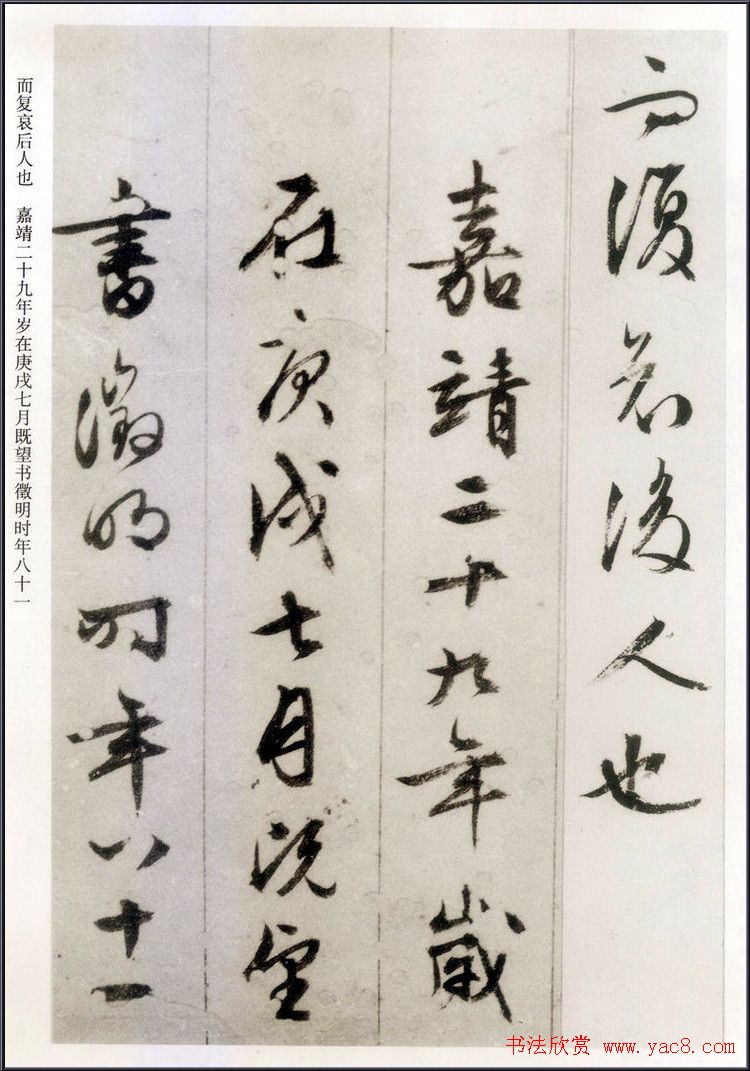 而復哀後人也
嘉靖二十九年歲
在庚戌七月既望
書徵明時年八十一
而复哀后人也 嘉靖二十九年岁在庚戌七月既望书徵明时年八十一
书法欣赏 www.yac8.com